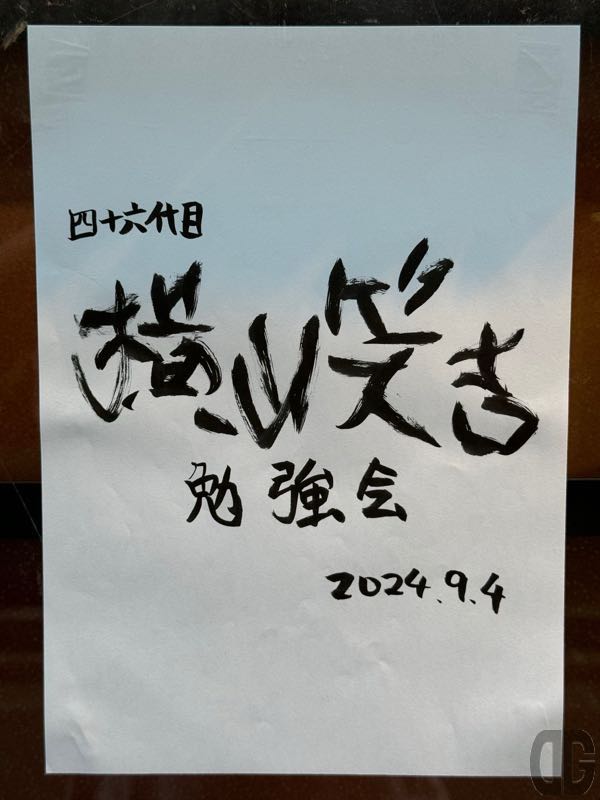 四十六代目
横山笑吉
勉強会
2024.9.4
DG